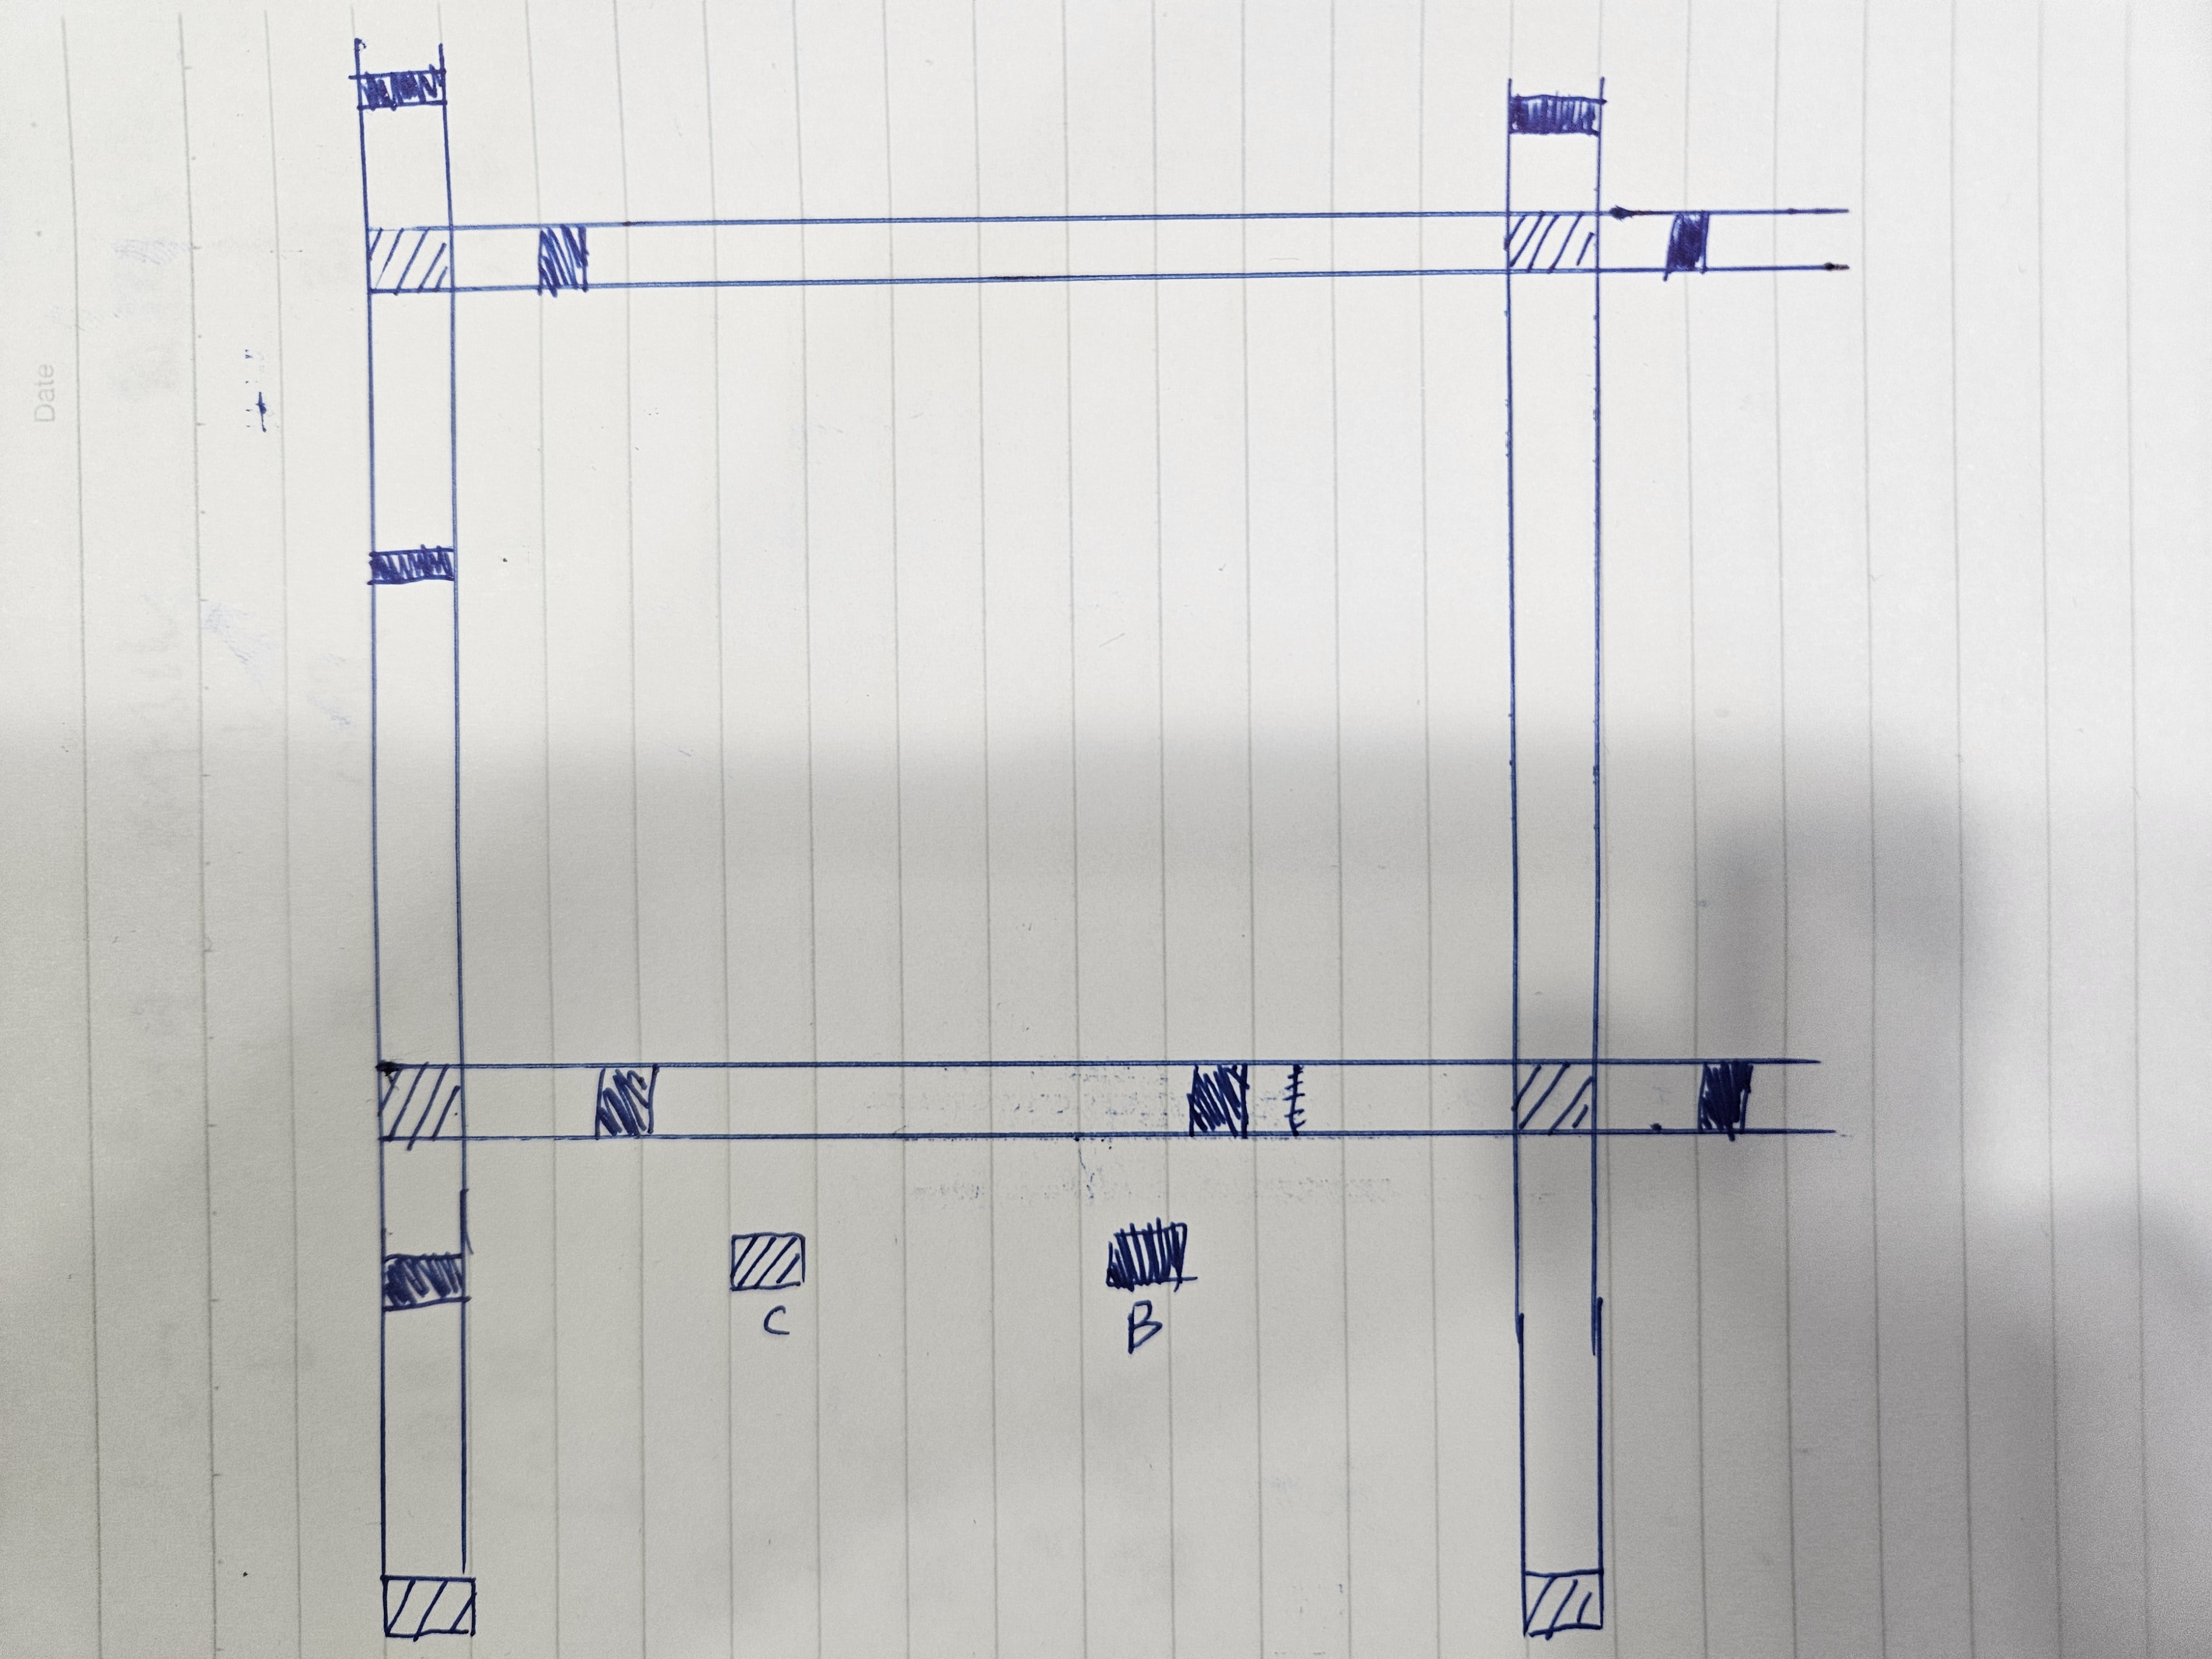 Date
C
B